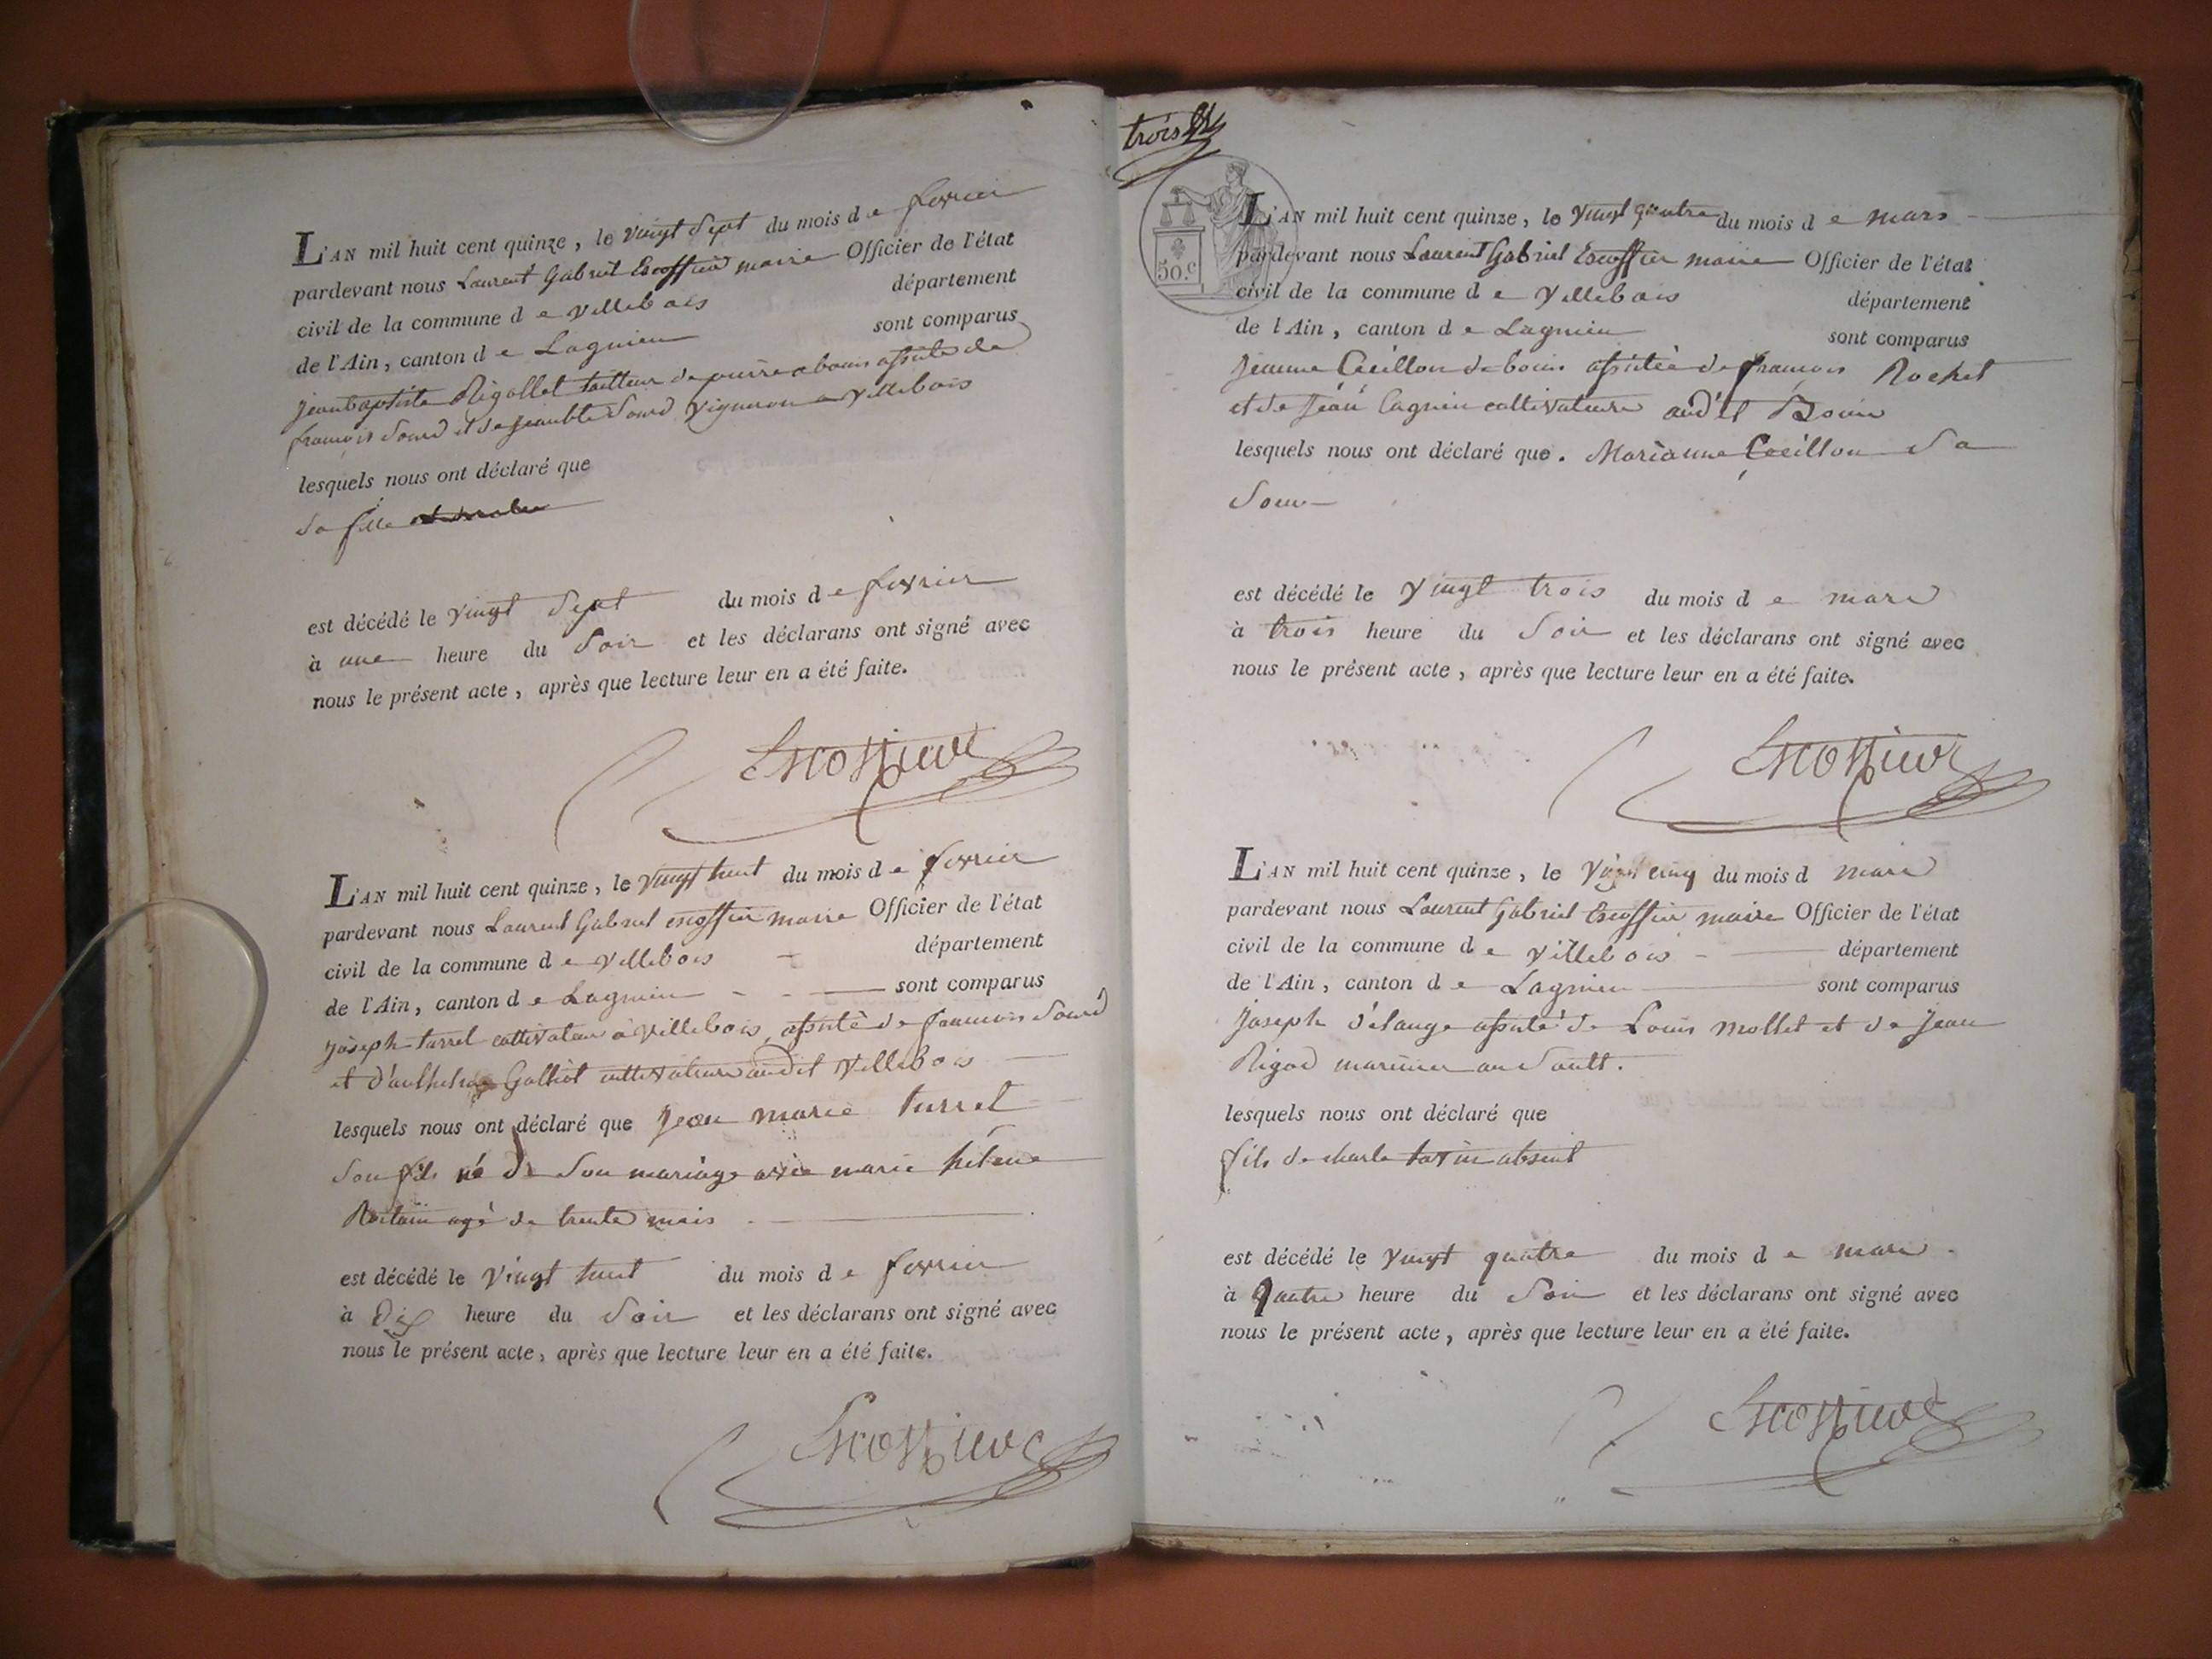 L'AN mil huit cent quinze, le vingt Sept du mois de fevrier
pardevant nous Laurent Gabriel Escoffier maire Officier de l'état
civil de la commune de villebois département
de l'Ain, canton de Lagnieu sont comparus
jean baptiste Rigollet tailleur de pierre a bouis assisté de
françois Sourd et de jean Sourd vigneron a villebois
lesquels nous ont déclaré que
Sa fille
est décédé le vingt Sept du mois de fevrier
à une heure du Soir et les déclarans ont signé avec
nous le présent acte, après que lecture leur en a été faite.
Escoffier
L'AN mil huit cent quinze, le vingt huit du mois de fevrier
pardevant nous Laurent Gabriel escoffier maire Officier de l'état
civil de la commune de villebois département
de l'Ain, canton de Lagnieu sont comparus
joseph turrel cultivateur à villebois, assisté de francois Sourd
et d'anthelme Galliot cultivateurs audit villebois
lesquels nous ont déclaré que jean marie turrel
Son fils né de Son mariage avec marie hélene
agé de trente mois
est décédé le vingt huit du mois de fevrier
à Dix heure du Soir et les déclarans ont signé avec
nous le présent acte, après que lecture leur en a été faite.
Escoffier
trois
50.c
L'AN mil huit cent quinze, le vingt quatre du mois de mars
pardevant nous Laurent Gabriel Escoffier maire Officier de l'état
civil de la commune de villebois département
de l'Ain, canton de Lagnieu sont comparus
jeanne Cecillon de bouis assistée de françois Rochet
et de jean Cagnin cultivateurs audit Bouis
lesquels nous ont déclaré que. Marianne Cecillon Sa
Soeur
est décédé le vingt trois du mois de mars
à trois heure du Soir et les déclarans ont signé avec
nous le présent acte, après que lecture leur en a été faite.
Escoffier
L'AN mil huit cent quinze, le vingt cinq du mois d mars
pardevant nous Laurent Gabriel Escoffier maire Officier de l'état
civil de la commune de villebois département
de l'Ain, canton de Lagnieu sont comparus
joseph d'élange assisté de Louis mollet et de jean
Rigod marinier au Sault.
lesquels nous ont déclaré que
fils de charle absent
est décédé le vingt quatre du mois de mars
à quatre heure du Soir et les déclarans ont signé avec
nous le présent acte, après que lecture leur en a été faite.
Escoffier